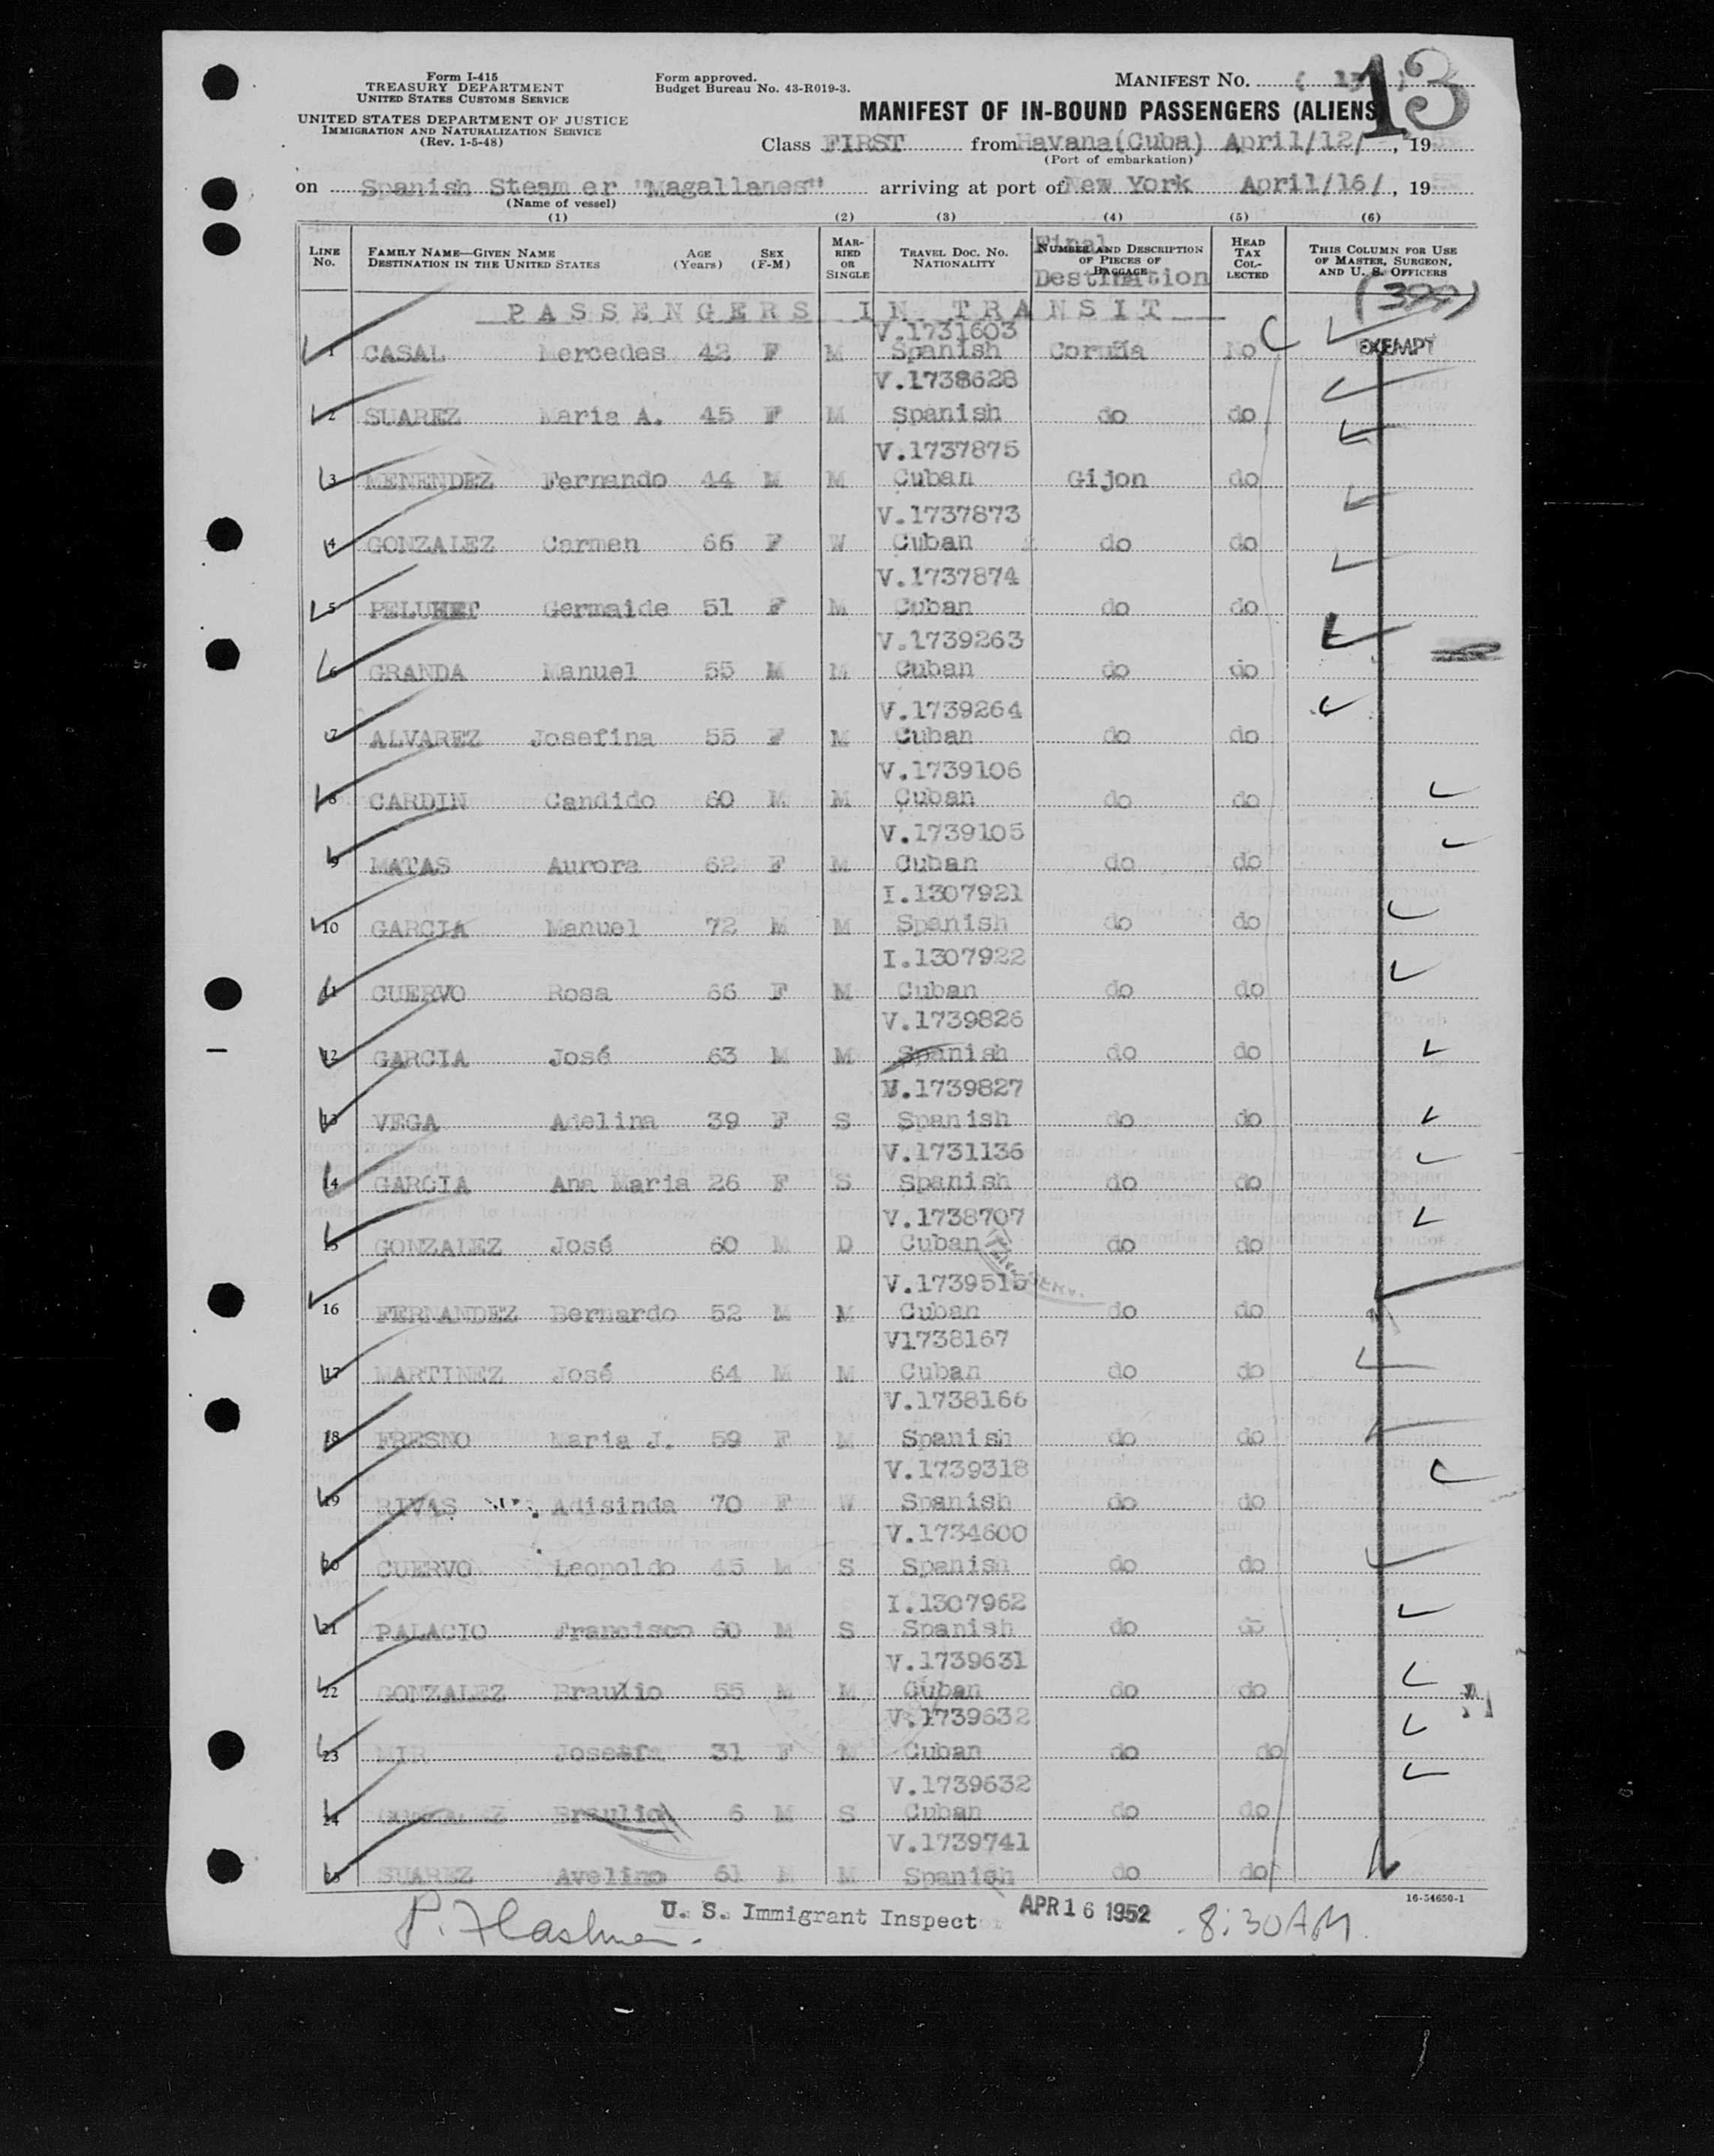 Form I-415
TREASURY DEPARTMENT
UNITED STATES CUSTOMS SERVICE
UNITED STATES DEPARTMENT OF JUSTICE
IMMIGRATION AND NATURALIZATION SERVICE
(Rev. 1-5-48)
Form approved.
Budget Bureau No. 43-R019-3.
MANIFEST No. ( 13 )
13
MANIFEST OF IN-BOUND PASSENGERS (ALIENS
Class FIRST from Havana(Cuba) April/12/ , 19
(Port of embarkation)
on Spanish Steamer "Magallanes" arriving at port of New York April/16/, 19
(Name of vessel)
(1) (2) (3) (4) (5) (6)
LINE No. FAMILY NAME—GIVEN NAME DESTINATION IN THE UNITED STATES AGE (Years) SEX (F-M) MARRIED OR SINGLE TRAVEL DOC. No. NATIONALITY NUMBER AND DESCRIPTION OF PIECES OF BAGGAGE Final Destination HEAD TAX COLLECTED THIS COLUMN FOR USE OF MASTER, SURGEON, AND U. S. OFFICERS
PASSENGERS IN TRANSIT
V.1731603
1 CASAL Mercedes 42 F M Spanish Coruña No C EXEMPT
V.1738628
2 SUAREZ Maria A. 45 F M Spanish do do
V.1737875
3 MENENDEZ Fernando 44 M M Cuban Gijon do
V.1737873
4 GONZALEZ Carmen 66 F W Cuban do do
V.1737874
5 PELUHET Germaide 51 F M Cuban do do
V.1739263
6 GRANDA Manuel 55 M M Cuban do do
V.1739264
7 ALVAREZ Josefina 55 F M Cuban do do
V.1739106
8 CARDIN Candido 60 M M Cuban do do
V.1739105
9 MATAS Aurora 62 F M Cuban do do
I.1307921
10 GARCIA Manuel 72 M M Spanish do do
I.1307922
11 CUERVO Rosa 66 F M Cuban do do
V.1739826
12 GARCIA José 63 M M Spanish do do
V.1739827
13 VEGA Adelina 39 F S Spanish do do
V.1731136
14 GARCIA Ana Maria 26 F S Spanish do do
V.1738707
15 GONZALEZ José 60 M D Cuban do do
V.1739515
16 FERNANDEZ Bernardo 52 M M Cuban do do
V1738167
17 MARTINEZ José 64 M M Cuban do do
V.1738166
18 FRESNO Maria J. 59 F M Spanish do do
V.1739318
19 RIVAS Adisinda 70 F W Spanish do do
V.1734600
20 CUERVO Leopoldo 45 M S Spanish do do
I.1307962
21 PALACIO Francisco 60 M S Spanish do do
V.1739631
22 GONZALEZ Braulio 55 M M Cuban do do
V.1739632
23 MIR Josefa 31 F M Cuban do do
V.1739632
24 GONZALEZ Braulio 6 M S Cuban do do
V.1739741
25 SUAREZ Avelino 61 M M Spanish do do
16-54650-1
U. S. Immigrant Inspector APR 16 1952 8:30 AM